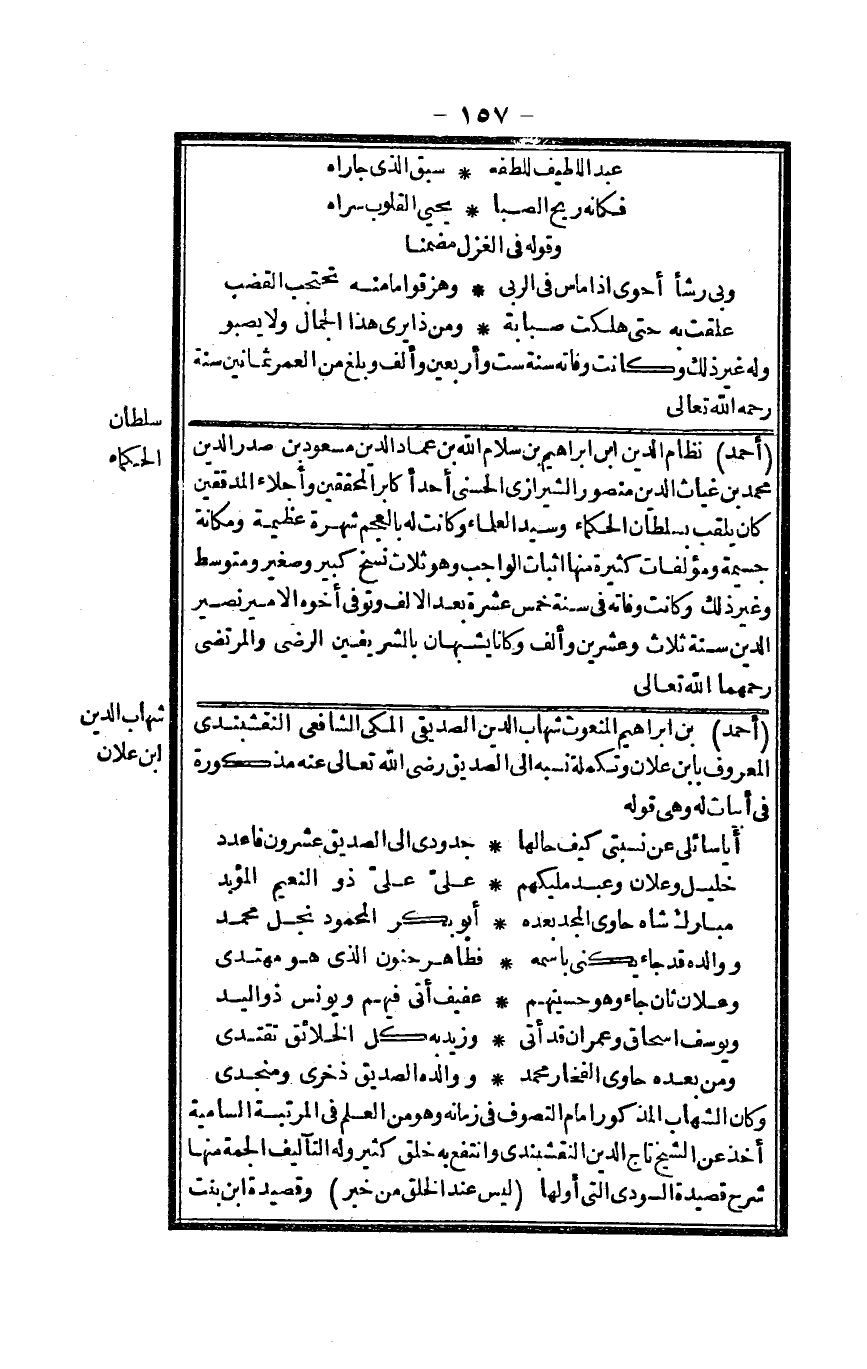 - ١٥٧ -
عبد اللطيف للطفه * سبق الذى جاراه
فكانه ريح الصبا * يحيي القلوب سراه
وقوله فى الغزل مضمنا
وبى رشأ أحوى اذا ماس فى الربى * وهز قواما منه تحتجب القضب
علقت به حتى هلكت صبابة * ومن ذا يرى هذا الجمال ولا يصبو
وله غير ذلك وكانت وفاته سنة ست وأربعين وألف وبلغ من العمر ثمانين سنة
رحمه الله تعالى
سلطان
الحكماء
(أحمد) نظام الدين ابن ابراهيم بن سلام الله بن عماد الدين مسعود بن صدر الدين
محمد بن غياث الدين منصور الشيرازى الحسنى أحد أكابر المحققين وأجلاء المدققين
كان يلقب بسلطان الحكماء وسيد العلماء وكانت له بالعجم شهرة عظيمة ومكانة
جسيمة ومؤلفات كثيرة منها اثبات الواجب وهو ثلاث نسخ كبير وصغير ومتوسط
وغير ذلك وكانت وفاته فى سنة خمس عشرة بعد الالف وتوفى أخوه الامير نصير
الدين سنة ثلاث وعشرين وألف وكانا يشبهان بالشريفين الرضى والمرتضى
رحمهما الله تعالى
شهاب الدين
ابن علان
(أحمد) بن ابراهيم المنعوت شهاب الدين الصديقى المكى الشافعى النقشبندى
المعروف بابن علان وتكملة نسبه الى الصديق رضى الله تعالى عنه مذكورة
فى أبيات له وهى قوله
أيا سائلى عن نسبتى كيف حالها * جدودى الى الصديق عشرون فاعدد
خليل وعلان وعبد مليكهم * علىّ علىّ ذو النعيم المؤبد
مبارك شاه حاوى المجد بعده * أبو بكر المحمود نجل محمد
ووالده قد جاء يكنى باسمه * فطاهر حنون الذى هو مهتدى
وعلان ثان جاء وهو حسينهم * عفيف أتى فيهم ويونس ذو اليد
ويوسف اسحاق وعمران قد أتى * وزيد به كل الخلائق تقتدى
ومن بعده حاوى الفخار محمد * ووالده الصديق ذخرى ومنجدى
وكان الشهاب المذكور امام التصوف فى زمانه وهو من العلم فى المرتبة السامية
أخذ عن الشيخ تاج الدين النقشبندى وانتفع به خلق كثير وله التآليف الجمة منها
شرح قصيدة السودى التى أولها (ليس عند الخلق من خبر) وقصيدة ابن بنت